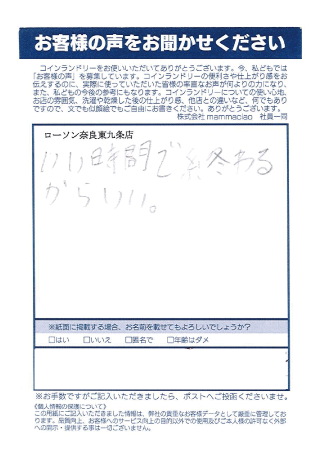 お客様の声をお聞かせください
コインランドリーをお使いいただいてありがとうございます。今、私どもでは
「お客様の声」を募集しています。コインランドリーの便利さや仕上がり感をお
伝えするのに、実際に使っていただいた皆様の率直なお声が何よりの力になり、
また、私どもの今後の参考にもなります。コインランドリーについての使い心地、
お店の雰囲気、洗濯や乾燥した後の仕上がり感、他店との違いなど、何でもあり
ですので、文でも似顔絵でもご自由にお書きください。ありがとうございます。
株式会社mammaciao 社員一同
ローソン奈良東九条店
いい時間で終わる
からいい。
※紙面に掲載する場合、お名前を載せてもよろしいでしょうか?
□はい □いいえ □匿名で □年齢はダメ
※お手数ですがご記入いただきましたら、ポストへご投函くださいませ。
《個人情報の保護について》
この用紙にご記入いただきました情報は、弊社の貴重なお客様データとして厳重に管理してお
ります。品質向上、お客様へのサービス向上の目的以外での使用及びご本人様の許可なく外部
への開示・提供する事は一切ございません。